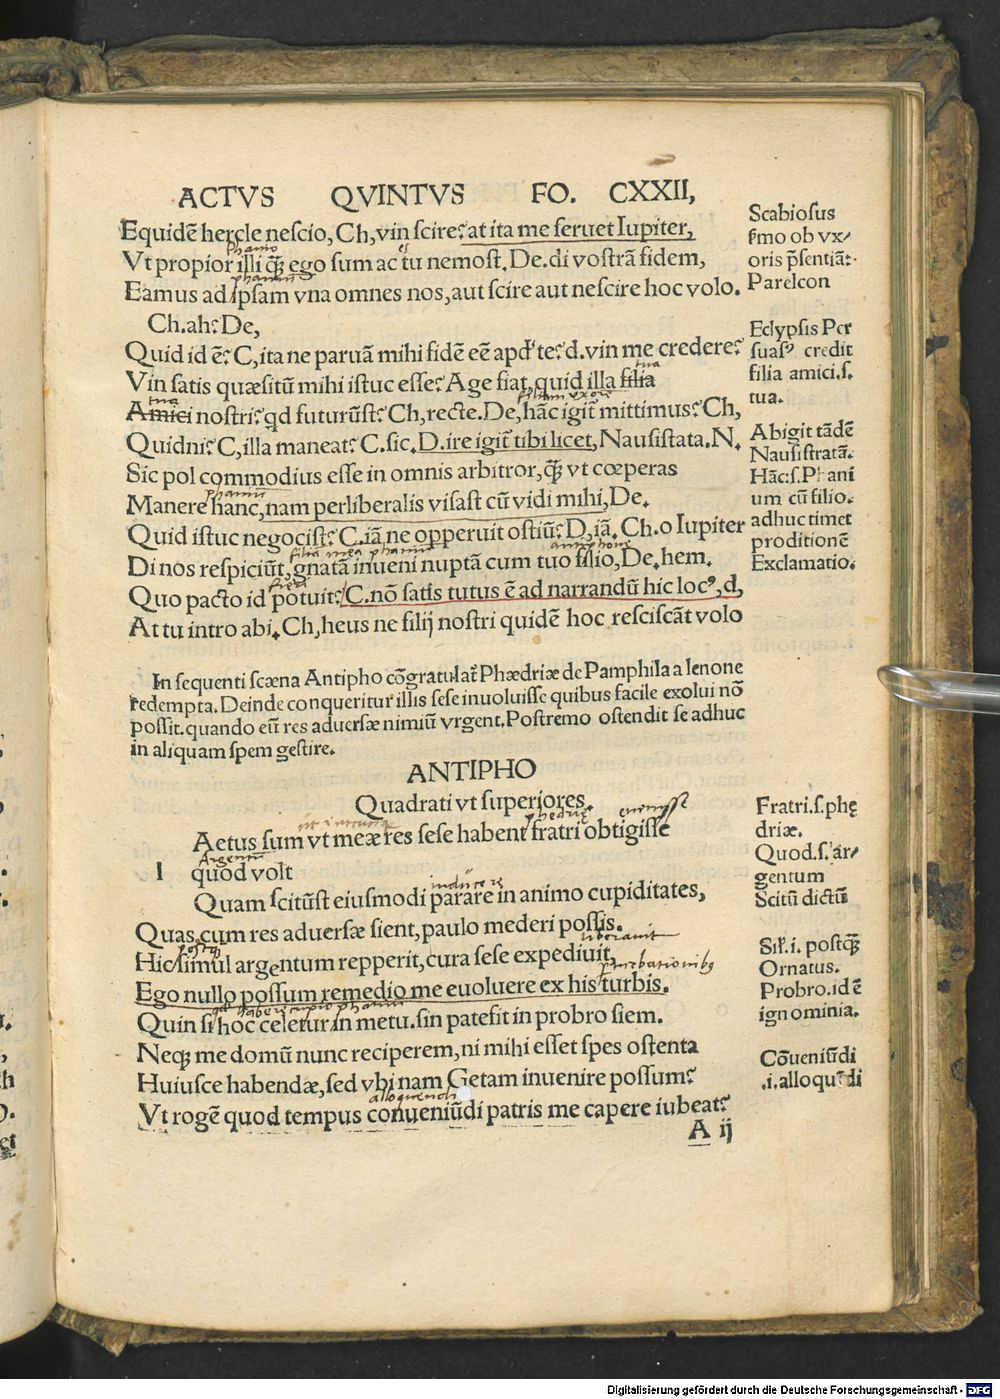 ACTVS QVINTVS FO. CXXII,
Equidē hercle nescio, Ch, vin scire? at ita me seruet Iupiter,
phanio es
Vt propior illi q̄ꝫ ego sum ac tu nemost. De. di vostrā fidem,
phaniū
Eamus ad ipsam vna omnes nos, aut scire aut nescire hoc volo.
Ch. ah? De,
Quid id ē? C, ita ne paruā mihi fidē eē apd' te? d. vin me credere?
Vin satis quæsitū mihi istuc esse? Age fiat, quid illa filia
tua
tua
Amici nostri? qd futurūst? Ch, recte. De, hāc igit̄ mittimus? Ch,
Quidni? C, illa maneat? C. sic. D. ire igit̄ tibi licet, Nausistata. N.
Sic pol commodius esse in omnis arbitror, q̄ꝫ vt cœperas
phaniū
Manere hanc, nam perliberalis visast cū vidi mihi, De.
Quid istuc negocist? C. iā ne opperuit ostiū? D, iā. Ch. o Iupiter
filiā mea phaniū antiphone
Di nos respiciūt, gnatā inueni nuptā cum tuo filio, De. hem.
fieri
Quo pacto id potuit? C. nō satis tutus ē ad narrandū hic locꝰ, d,
At tu intro abi. Ch, heus ne filij nostri quidē hoc resciscāt volo
In sequenti scæna Antipho cōgratulat̄ Phædriæ de Pamphila a lenone
redempta. Deinde conqueritur illis sese inuoluisse quibus facile exolui nō
possit. quando eū res aduersæ nimiū vrgent. Postremo ostendit se adhuc
in aliquam spem gestire.
ANTIPHO
Quadrati vt superiores.
Aetus sum vt meæ res sese habent fratri obtigisse
phedrie
Argentū
l quod volt
Quam scitūst eiusmodi parare in animo cupiditates,
inducere
Quas, cum res aduersæ sient, paulo mederi possis.
postq̄ liberauit
Hic simul argentum repperit, cura sese expediuit,
Ego nullo possum remedio me euoluere ex his turbis.
Quin si hoc celetur in metu. sin patefit in probro siem.
Neqꝫ me domū nunc reciperem, ni mihi esset spes ostenta
Huiusce habendæ, sed vbi nam Getam inuenire possum?
alloquendi
Vt rogē quod tempus conueniūdi patris me capere iubeat?
A ij
Scabiosus
ẜmo ob vx/
oris p̄sentiā:
Parelcon
Eclypsis Per
suasꝰ credit
filia amici. s.
tua.
Abigit tādē
Nausistratā.
Hāc: s. Phani
um cū filio.
adhuc timet
proditionē
Exclamatio.
Fratri. s. phę
driæ.
Quod. s. ar/
gentum
Scitū dictū
Sil'. i. postq̄ꝫ
Ornatus.
Probro. id ē
ignominia.
Cōueniūdi
.i. alloquēdi
Digitalisierung gefördert durch die Deutsche Forschungsgemeinschaft - DFG